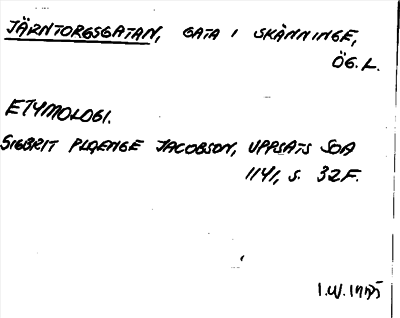 JÄRNTORGSGATAN, GATA I SKÄNNINGE,
ÖG. L.
ETYMOLOGI.
SIGBRIT PLÆNGE JACOBSON, UPPSATS SOA
1141, S. 32F.
I.W.